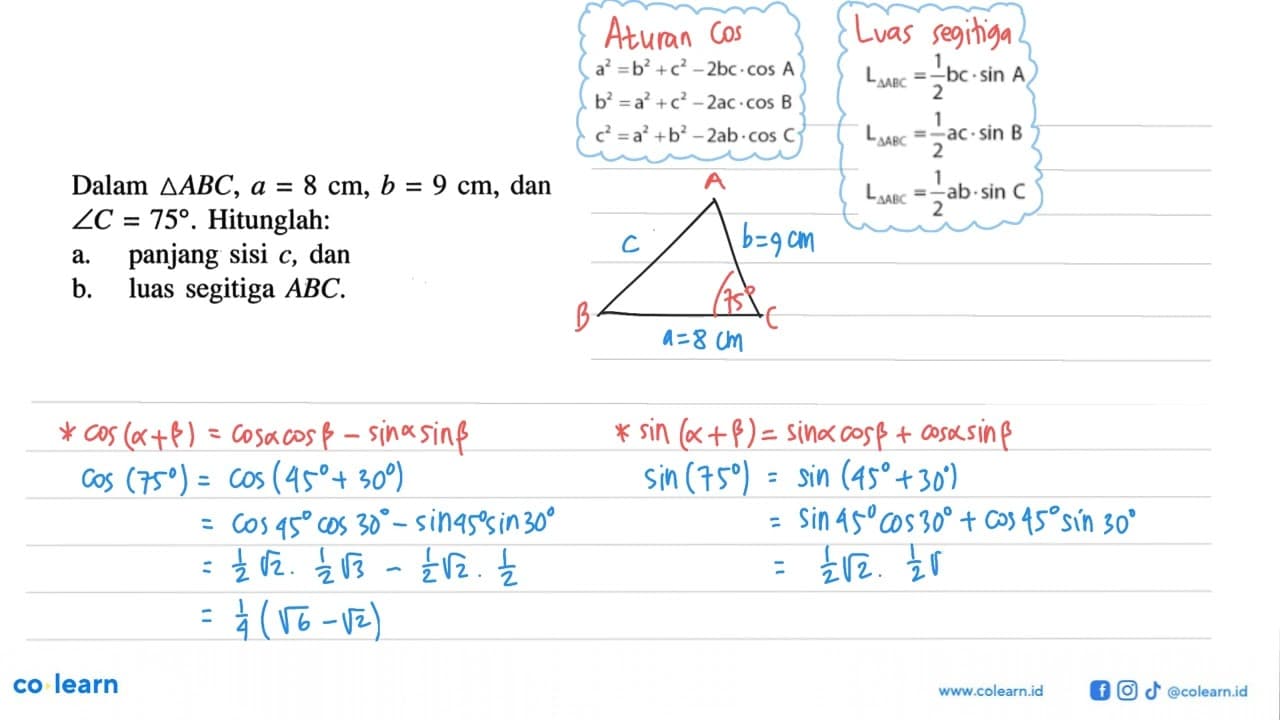 Aturan Cos
a² = b² + c² − 2bc · cos A
b² = a² + c² − 2ac · cos B
c² = a² + b² − 2ab · cos C
Luas segitiga
L△ABC = 1/2 bc · sin A
L△ABC = 1/2 ac · sin B
L△ABC = 1/2 ab · sin C
Dalam △ABC, a = 8 cm, b = 9 cm, dan
∠C = 75°. Hitunglah:
a. panjang sisi c, dan
b. luas segitiga ABC.
A
c
b=9 cm
75°
B
C
a=8 cm
* cos (α+β) = cosα cosβ − sinα sinβ
cos (75°) = cos (45° + 30°)
= cos 45° cos 30° − sin45° sin 30°
= 1/2 √2 . 1/2 √3 − 1/2 √2 . 1/2
= 1/4 (√6 − √2)
* sin (α+β) = sinα cosβ + cosα sinβ
sin (75°) = sin (45° + 30°)
= sin 45° cos 30° + cos 45° sin 30°
= 1/2 √2 . 1/2 √
co learn
www.colearn.id
@colearn.id